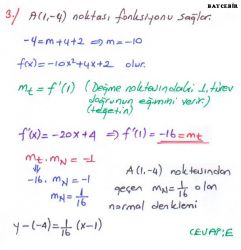 BAYGEBİR
3-/ A(1,-4) noktası fonksiyonu sağlar.
-4=m+4+2 ⇒ m=-10
f(x)=-10x²+4x+2 olur.
m_t = f'(1) (Değme noktasındaki 1. türev
doğrunun eğimini verir.)
(teğetin)
f'(x)=-20x+4 ⇒ f'(1)=-16=m_t
m_t . m_N = -1
-16. m_N = -1
m_N = 1/16
A(1,-4) noktasından
geçen m_N=1/16 olan
normal denklemi
y-(-4)=1/16 (x-1)
CEVAP:E